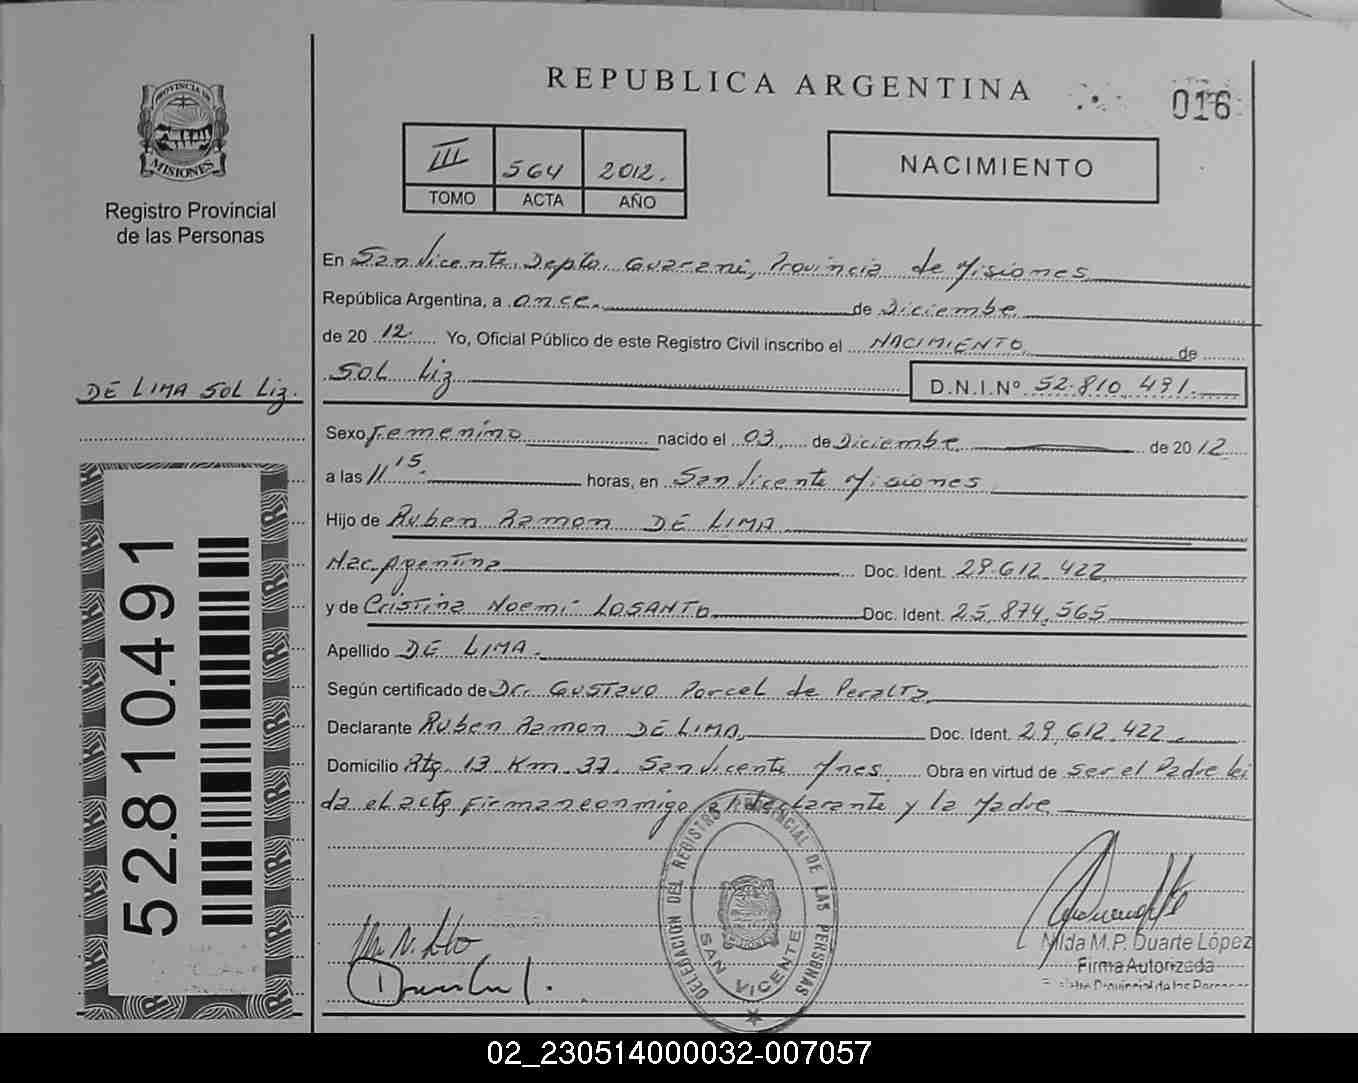 REPUBLICA ARGENTINA
016
PROVINCIA DE
MISIONES
Registro Provincial
de las Personas
III 564 2012.
TOMO ACTA AÑO
NACIMIENTO
En San Vicente, Depto. Guarani, Provincia de Misiones
República Argentina, a once de Diciembre
de 2012. Yo, Oficial Público de este Registro Civil inscribo el NACIMIENTO de
SOL Liz D.N.I.Nº 52.810.491.
DE LIMA SOL Liz.
Sexo Femenino nacido el 03 de Diciembre de 2012
a las 11 15. horas, en San Vicente Misiones
Hijo de Ruben Ramon DE LIMA
Nac. Argentina Doc. Ident. 29.612.422
y de Cristina Noemi LOSANTO Doc. Ident. 25.874.565
Apellido DE LIMA.
Según certificado de Dr. Gustavo Porcel de Peralta
Declarante Ruben Ramon DE LIMA, Doc. Ident. 29.612.422
Domicilio Rta. 13 Km. 37. San Vicente Mnes Obra en virtud de ser el Padre lei
da el acta Firman conmigo el declarante y la Madre
52.810.491
DELEGACION DEL REGISTRO PROVINCIAL DE LAS PERSONAS
SAN VICENTE
Nilda M.P. Duarte López
Firma Autorizada
Registro Provincial de las Personas
02_230514000032-007057